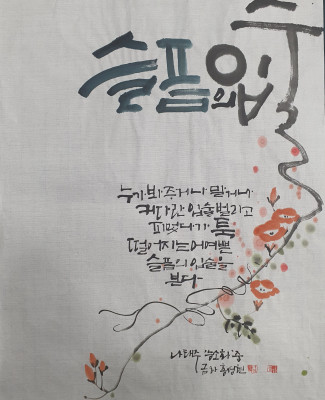 슬픔의 입술
누가 봐 주거나 말거나
커다란 입술 벌리고
피었다가 툭
떨어지는 어여쁜
슬픔의 입술을
본다
나태주 능소화 중